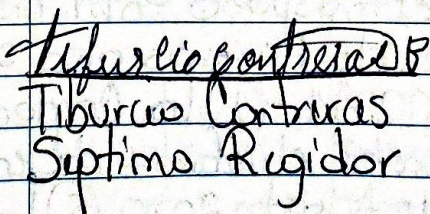 Tifurcio Contreras B
Tiburcio Contreras
Septimo Regidor